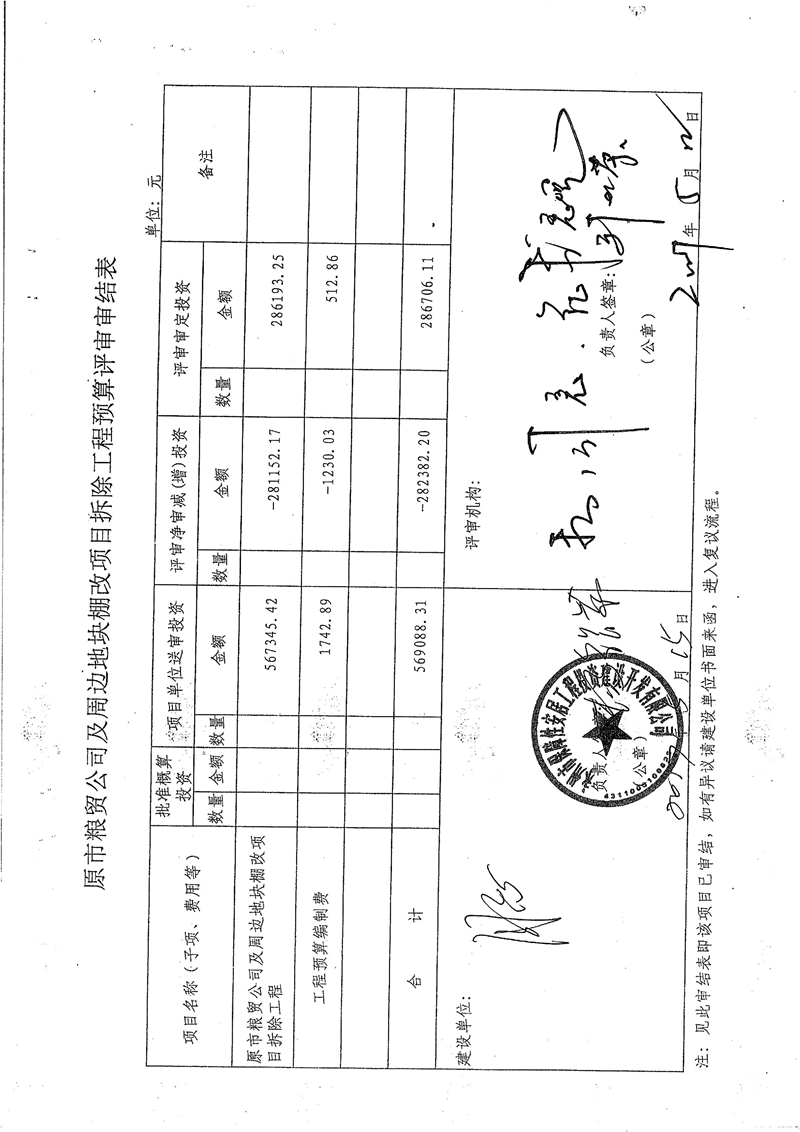 原市粮贸公司及周边地块棚改项目拆除工程预算评审审结表
单位：元
项目名称（子项、费用等） 批准概算投资 项目单位送审投资 评审净审减(增)投资 评审审定投资 备注
数量 金额 数量 金额 数量 金额 数量 金额
原市粮贸公司及周边地块棚改项
目拆除工程 567345.42 -281152.17 286193.25
工程预算编制费 1742.89 -1230.03 512.86
合 计 569088.31 -282382.20 286706.11 -
建设单位：
评审机构：
负责人
负责人签章：
（公章）
（公章）
月15日
年5月 日
注：见此审结表即该项目已审结，如有异议请建设单位书面来函，进入复议流程。